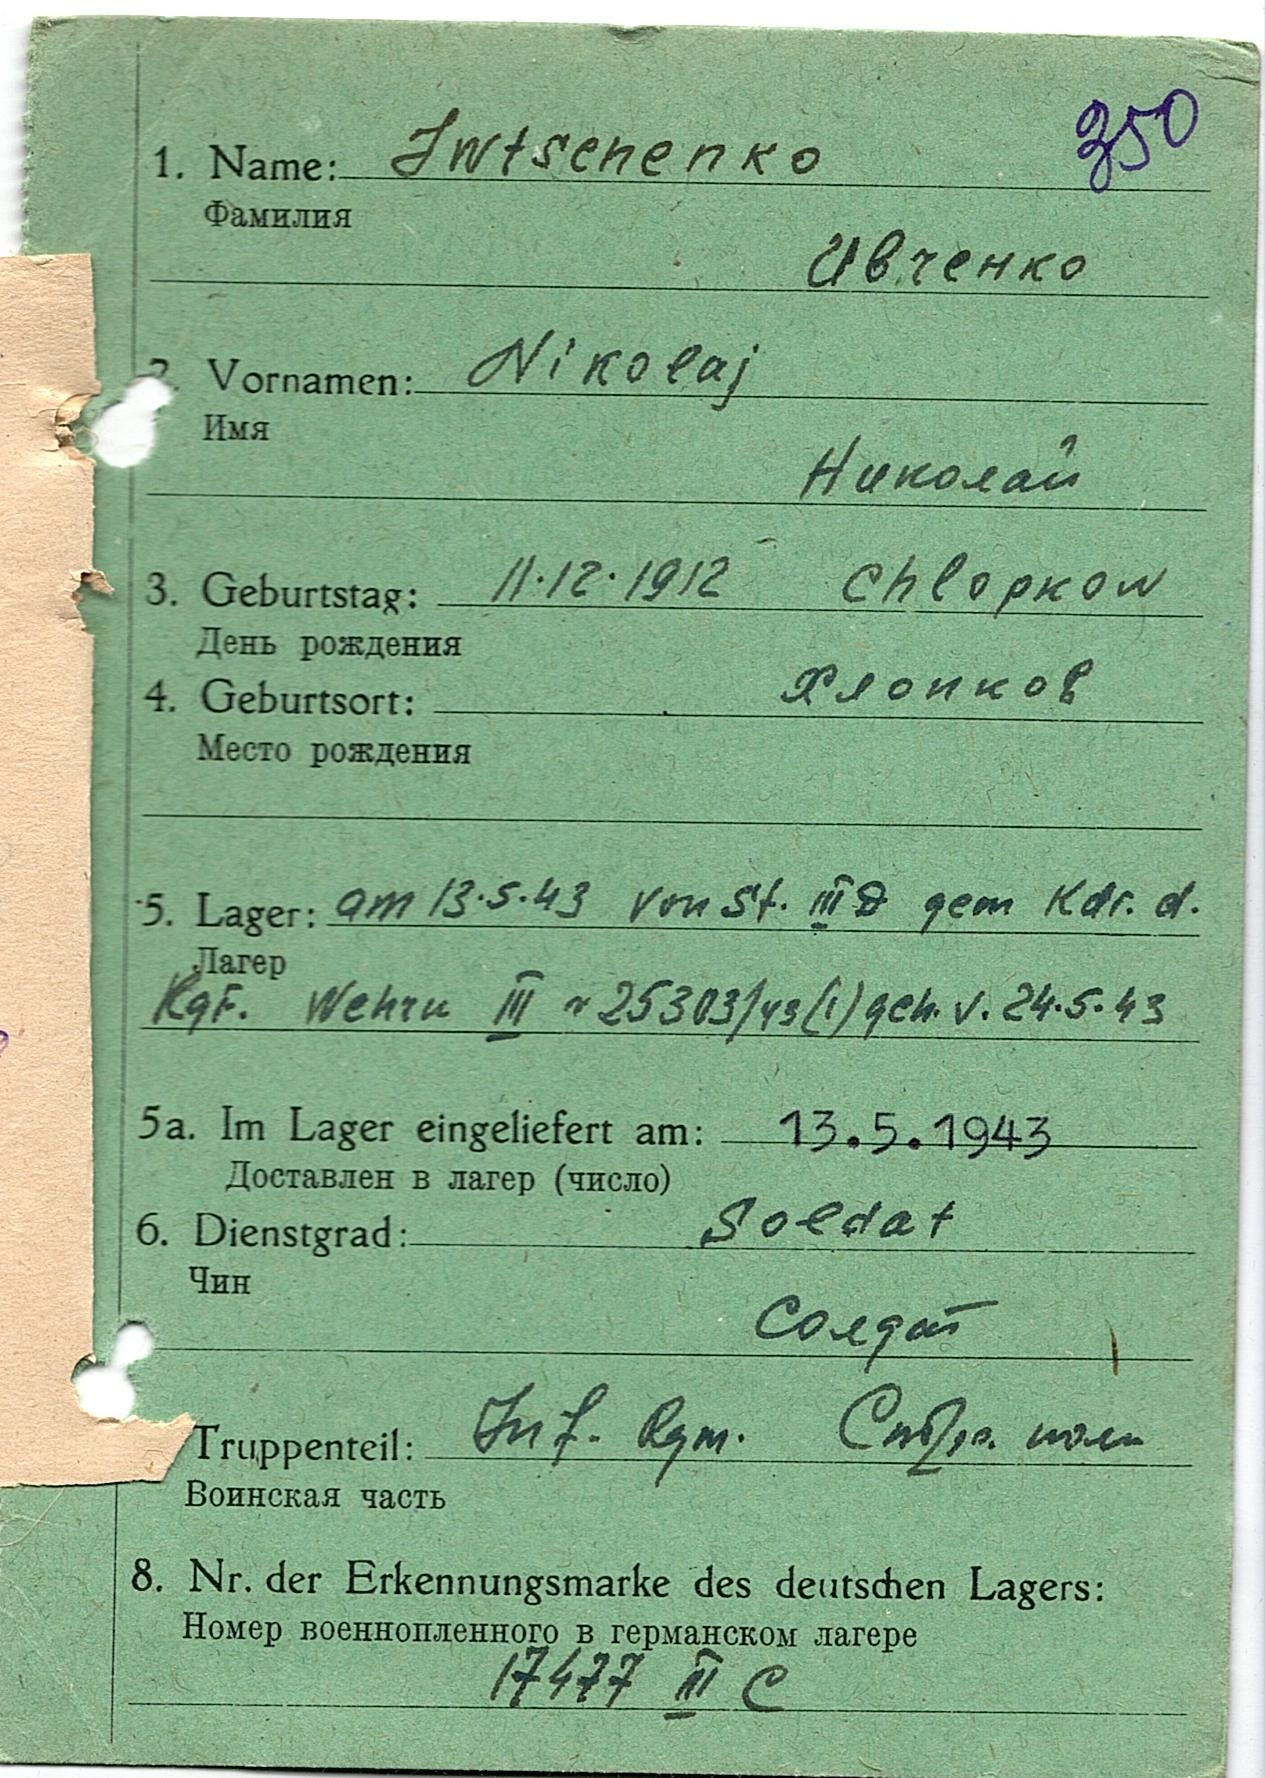 350
1. Name: Iwtschenko
Фамилия
Ивченко
2. Vornamen: Nikolaj
Имя
Николай
3. Geburtstag: 11.12.1912 Chlopkow
День рождения
Хлопков
4. Geburtsort:
Место рождения
5. Lager: am 13.5.43 von St. III D gem Kdr. d.
Лагер
Kgf. Wehrk III 25303/43(1) geh. v. 24.5.43
5a. Im Lager eingeliefert am: 13.5.1943
Доставлен в лагер (число)
6. Dienstgrad: Soldat
Чин
Солдат
Truppenteil: Inf. Rgm. полк
Воинская часть
8. Nr. der Erkennungsmarke des deutschen Lagers:
Номер военнопленного в германском лагере
17477 III C